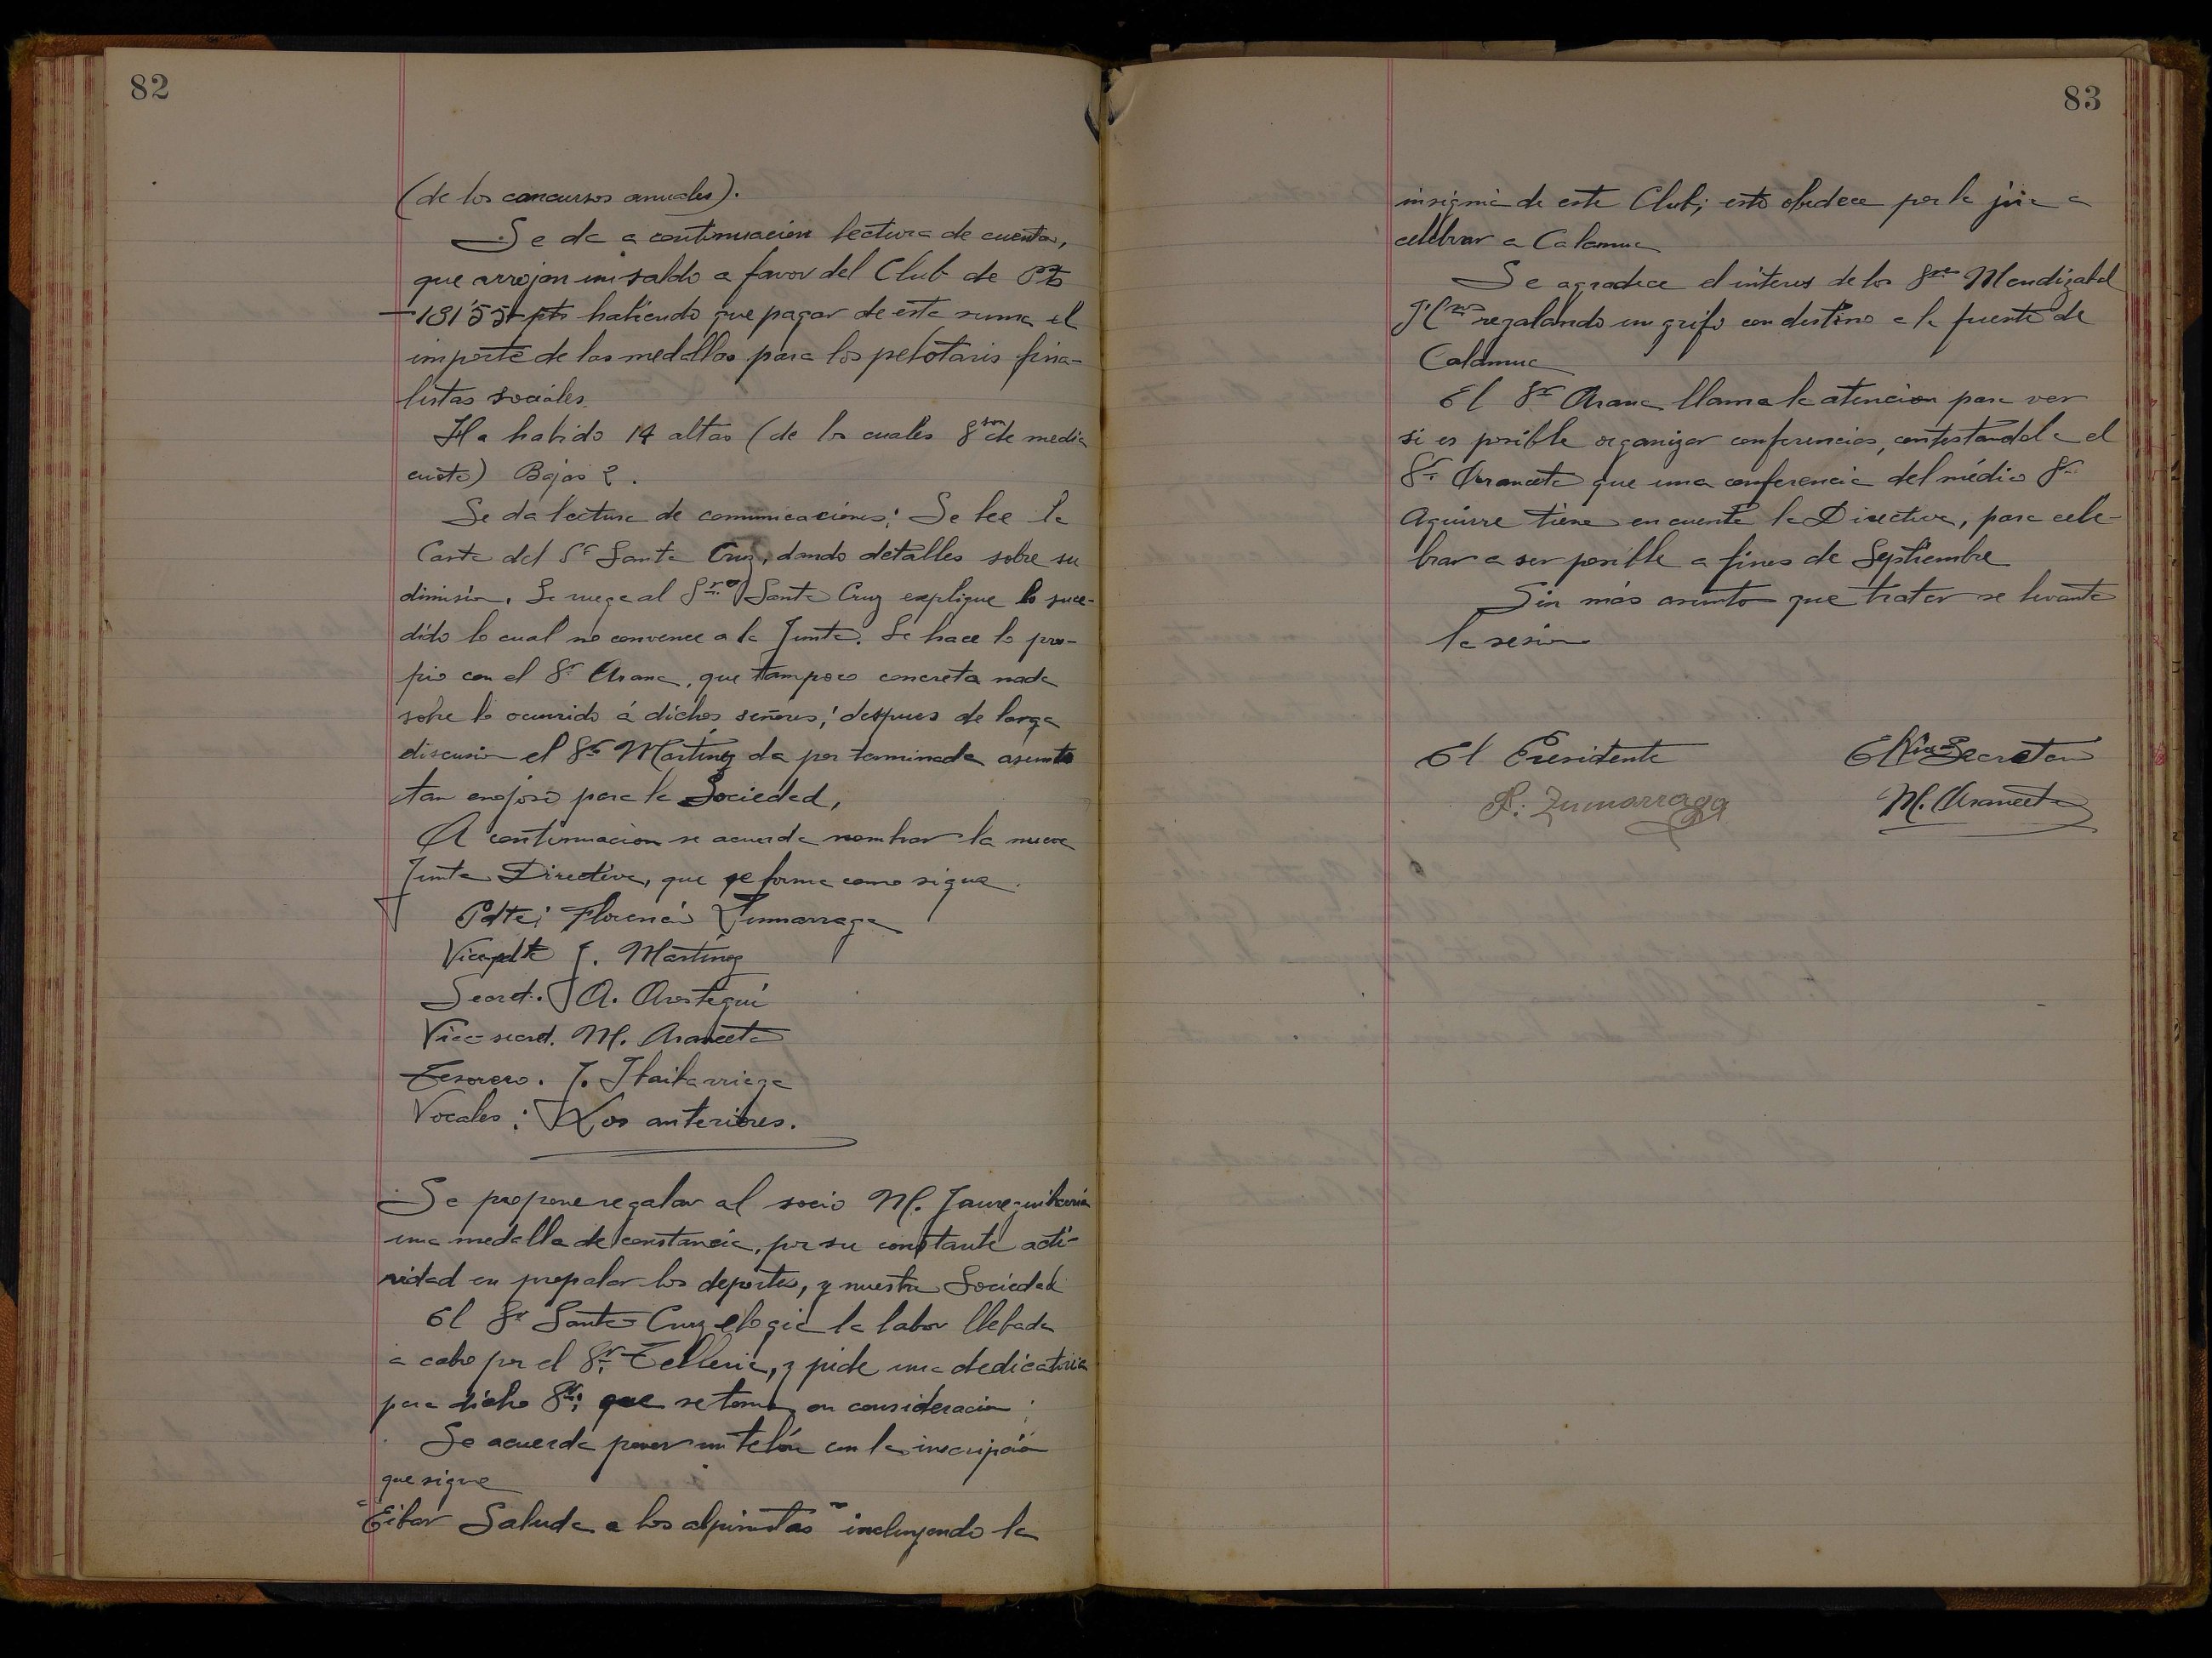 82
(de los concursos anuales).
Se da a continuación lectura de cuentas,
que arrojan un saldo a favor del Club de Pts
131'55 pts habiendo que pagar de esta suma el
importe de las medallas para los pelotaris fina-
listas sociales.
Ha habido 14 altas (de los cuales 8 son de media
cuota) Bajas 2.
Se da lectura de comunicaciones: Se lee la
Carta del Sr Santa Cruz, dando detalles sobre su
dimisión. Se ruega al Sr. Santa Cruz explique lo suce-
dido lo cual no convence a la Junta. Se hace lo pro-
pio con el Sr Arana, que tampoco concreta nada
sobre lo ocurrido á dichos señores; despues de larga
discusión el Sr Martinez da por terminada asunto
tan enojoso para la Sociedad,
A continuación se acuerda nombrar la nueva
Junta Directiva, que se forma como sigue.
Pdte: Florencio Zumarraga
Vicepdte J. Martinez
Secret. A. Arostegui
Vice-secret. M. Araneeta
Tesorero. J. Ibaibarriaga
Vocales: Los anteriores.
Se propone regalar al socio M. Jaureguibarria
una medalla de constancia, por su constante acti-
vidad en propalar los deportes, y nuestra Sociedad
El Sr Santa Cruz elogia la labor llebada
a cabo por el Sr. Telleria, y pide una dedicatoria
para dicho Sr: que se toma en consideración
Se acuerda poner un telón con la inscripción
que sigue
"Eibar Saluda a los alpinistas" incluyendo la
83
insignia de este Club; esto obedece por la jira a
celebrar a Calamua
Se agradece el interes de los Sres Mendizabal
regalando un grifo con destino a la fuente de
Calamua
El Sr Arana llama la atención para ver
si es posible organizar conferencias, contestandole el
Sr. Araneeta que una conferencia del médico Sr
Aguirre tiene en cuenta la Directiva, para cele-
brar a ser posible a fines de Septiembre
Sin más asunto que tratar se levanta
la sesión
El Presidente
El Vice Secretario
F. Zumarraga
M. Araneeta